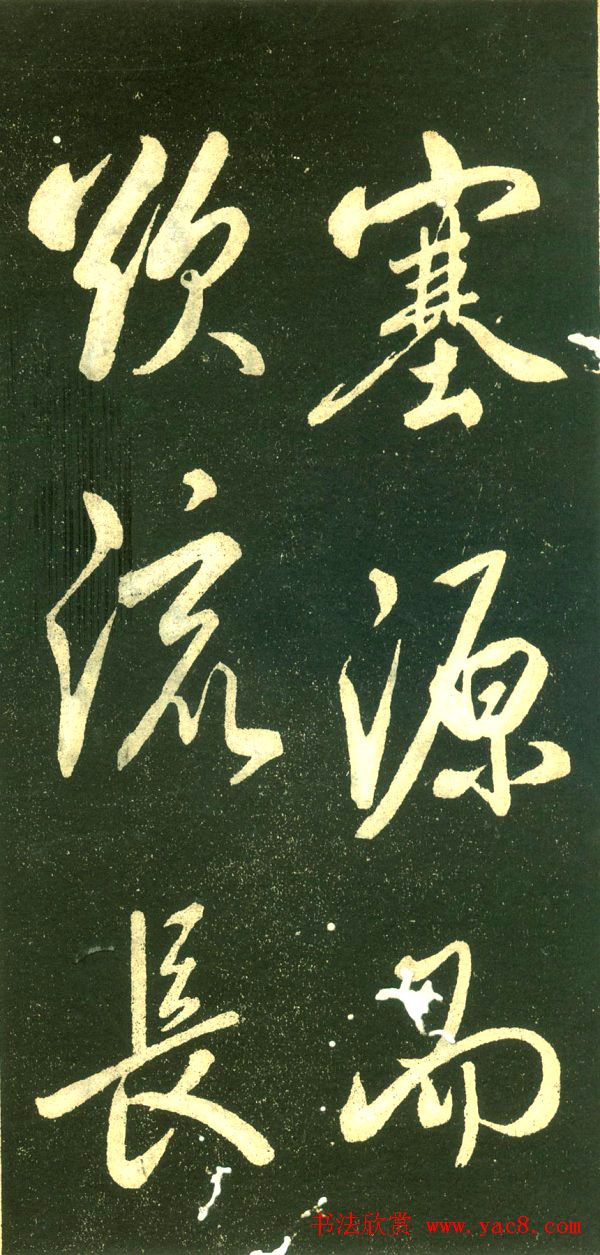 塞源易
流長
书法欣赏 www.yac8.com